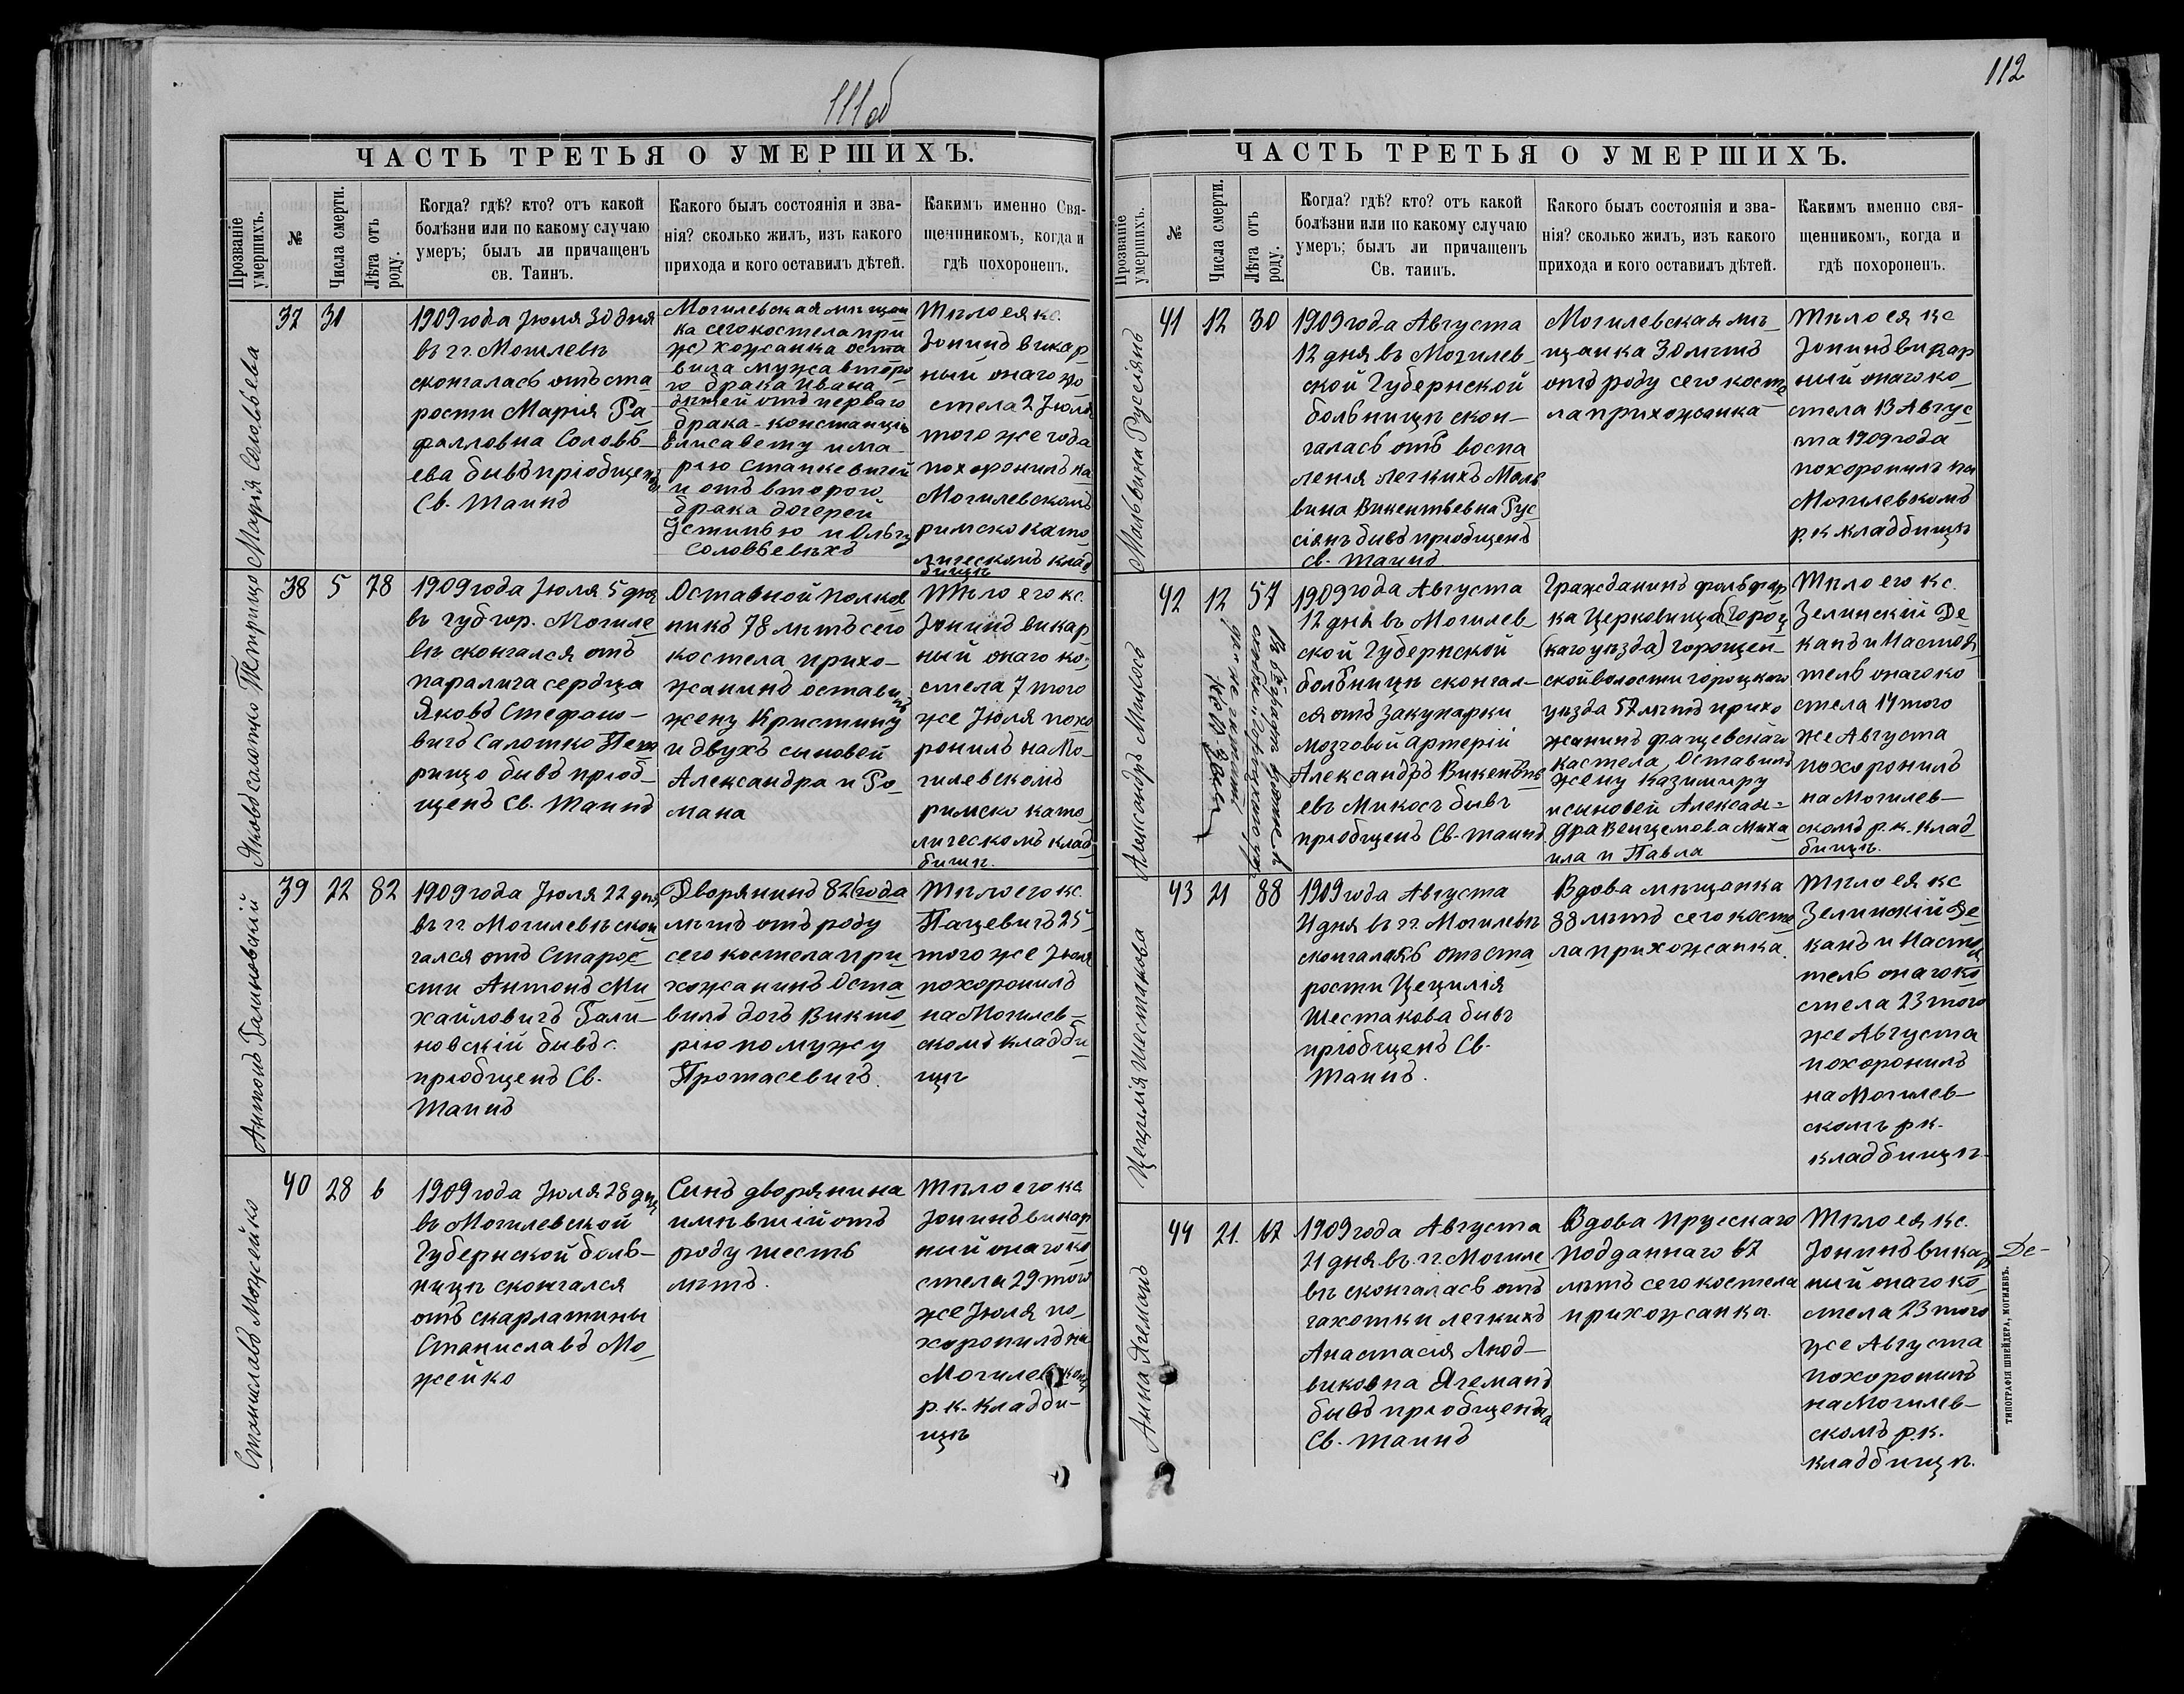 111 об
ЧАСТЬ ТРЕТЬЯ О УМЕРШИХЪ.
Прозваніе умершихъ.
№
Числа смерти.
Лѣта отъ роду.
Когда? гдѣ? кто? отъ какой
болѣзни или по какому случаю
умеръ; былъ ли причащенъ
св. Таинъ.
Какого былъ состоянія и зва-
нія? сколько жилъ, изъ какого
прихода и кого оставилъ дѣтей.
Какимъ именно Свя-
щенникомъ, когда и
гдѣ похороненъ.
Марія Соловьева
37
30
1909 года Іюля 30 дня
въ гг. Могилевѣ
скончалась отъ ста
рости Марія Ра
фалловна Соловь
ева бывъ пріобщена
Св. Таинъ
Могилевская мѣщан
ка сего костела при
хожанка оста
вила мужа второ
го брака Ивана
дѣтей отъ перваго
брака - Констанцію
Елисавету и Ма
рію Станкевичей
и отъ второго
брака дочерей
Устинью и Ольгу
Соловьевыхъ
Тѣло ея кс.
Іонинъ викар
ный онаго ко
стела 2 Іюля
того же года
похоронилъ на
Могилевскомъ
римско като
лическомъ клад
бищѣ
Яковъ Салотко Петрищо
38
5
78
1909 года Іюля 5 дня
въ губ. гор. Могиле
вѣ скончался отъ
паралича сердца
Яковъ Стефано-
вичъ Салотко Пет
рищо бывъ пріоб-
щенъ Св. Таинъ
Оставной полков
никъ 78 лѣтъ сего
костела прихо-
жанинъ оставилъ
жену Кристину
и двухъ сыновей
Александра и Ро
мана
Тѣло его кс.
Іонинъ викар
ный онаго ко-
стела 7 того
же Іюля похо
ронилъ на Мо-
гилевскомъ
римско като
лическомъ клад
бищѣ.
Антонъ Галиновскій
39
22
82
1909 года Іюля 22 дня
въ гг. Могилевѣ скон
чался отъ старос
сти Антонъ Ми
хайловичъ Гали-
новскій бывъ
пріобщенъ Св.
Таинъ
Дворянинъ 82 (года
лѣтъ отъ роду
сего костела при
хожанинъ Оста
вилъ дочь Викто
рію по мужу
Протасевичъ.
Тѣло его кс.
Пацевичъ 25
того же Іюля
похоронилъ
на Могилев-
скомъ кладби
щѣ
Станиславъ Можейко
40
28
6
1909 года Іюля 28 дня
въ Могилевской
Губернской боль-
ницѣ скончался
отъ скарлатины
Станиславъ Мо
жейко
Сынъ дворянина
имѣвшій отъ
роду шесть
лѣтъ.
Тѣло его кс
Іонинъ викар
ный онаго ко
стела 29 того
же Іюля по-
хоронилъ на
Могилевскомъ
р. к. кладби-
щѣ
112
ЧАСТЬ ТРЕТЬЯ О УМЕРШИХЪ.
Прозваніе умершихъ.
№
Числа смерти.
Лѣта отъ роду.
Когда? гдѣ? кто? отъ какой
болѣзни или по какому случаю
умеръ; былъ ли причащенъ
Св. таинъ.
Какого былъ состоянія и зва-
нія? сколько жилъ, изъ какого
прихода и кого оставилъ дѣтей.
Какимъ именно свя-
щенникомъ, когда и
гдѣ похороненъ.
Мальвина Руссіянъ
41
12
30
1909 года Августа
12 дня въ Могилев-
ской Губернской
больницѣ скон-
чалась отъ воспа
ленія легкихъ Маль
вина Викентьевна Рус
сіянъ бывъ пріобщенъ
Св. Таинъ
Могилевская мѣ
щанка 30 лѣтъ
отъ роду сего косте
ла прихожанка
Тѣло ея кс
Іонинъ викар
ный онаго ко
стела 13 Авгус
та 1909 года
похоронилъ на
Могилевкомъ
р. к кладбищѣ
Александръ Микосъ
42
12
57
1909 года Августа
12 дня въ Могилев
ской Губернской
больницѣ скончал-
ся отъ закупарки
мозговой артерій
Александръ Викентье
евъ Микосъ бывъ
пріобщенъ Св. таинъ
Гражданинъ фольвар
ка Церковища (Гороц
(каго уѣзда) горощен-
ской волости горцкаго
уѣзда 57 лѣтъ прихо
жанинъ фащевскаго
костела, Оставилъ
жену Казимиру
и сыновей Алексан-
дра Венцеслова Миха
ила и Павла
Тѣло его кс.
Зелинскій Де
канъ и Настоя
тель онаго ко
стела 14 того
же Августа
похоронилъ
на Могилев-
скомъ р. к. клад
бищѣ.
Цецилія Шестакова
43
21
88
1909 года Августа
21 дня въ гг. Могилевѣ
скончалась отъ ста
рости Цецилія
Шестакова бывъ
пріобщенъ Св.
Таинъ.
Вдова мѣщанка
88 лѣтъ сего косте
ла прихожанка.
Тѣло ея кс
Зелинскій Де
канъ и Настоя
тель онаго ко
стела 23 того
же Августа
похоронилъ
на Могилев-
скомъ р к.
кладбищѣ.
Анна Ягеманъ
44
21.
67
1909 года Августа
21 дня въ гг. Могиле
вѣ скончалась отъ
чахотки легкихъ
Анастасія Люд-
виковна Ягеманъ
бывъ пріобщенна
Св. таинъ
Вдова Прусскаго
подданнаго 67
лѣтъ сего костела
прихожанка.
Тѣло ея кс.
Іонинъ викар
ный онаго ко
стела 23 того
же Августа
похоронилъ
на Могилев-
скомъ р. к.
кладбищѣ.
Де-
ТИПОГРАФІЯ ШНЕЙДЕРА, МОГИЛЕВЪ.